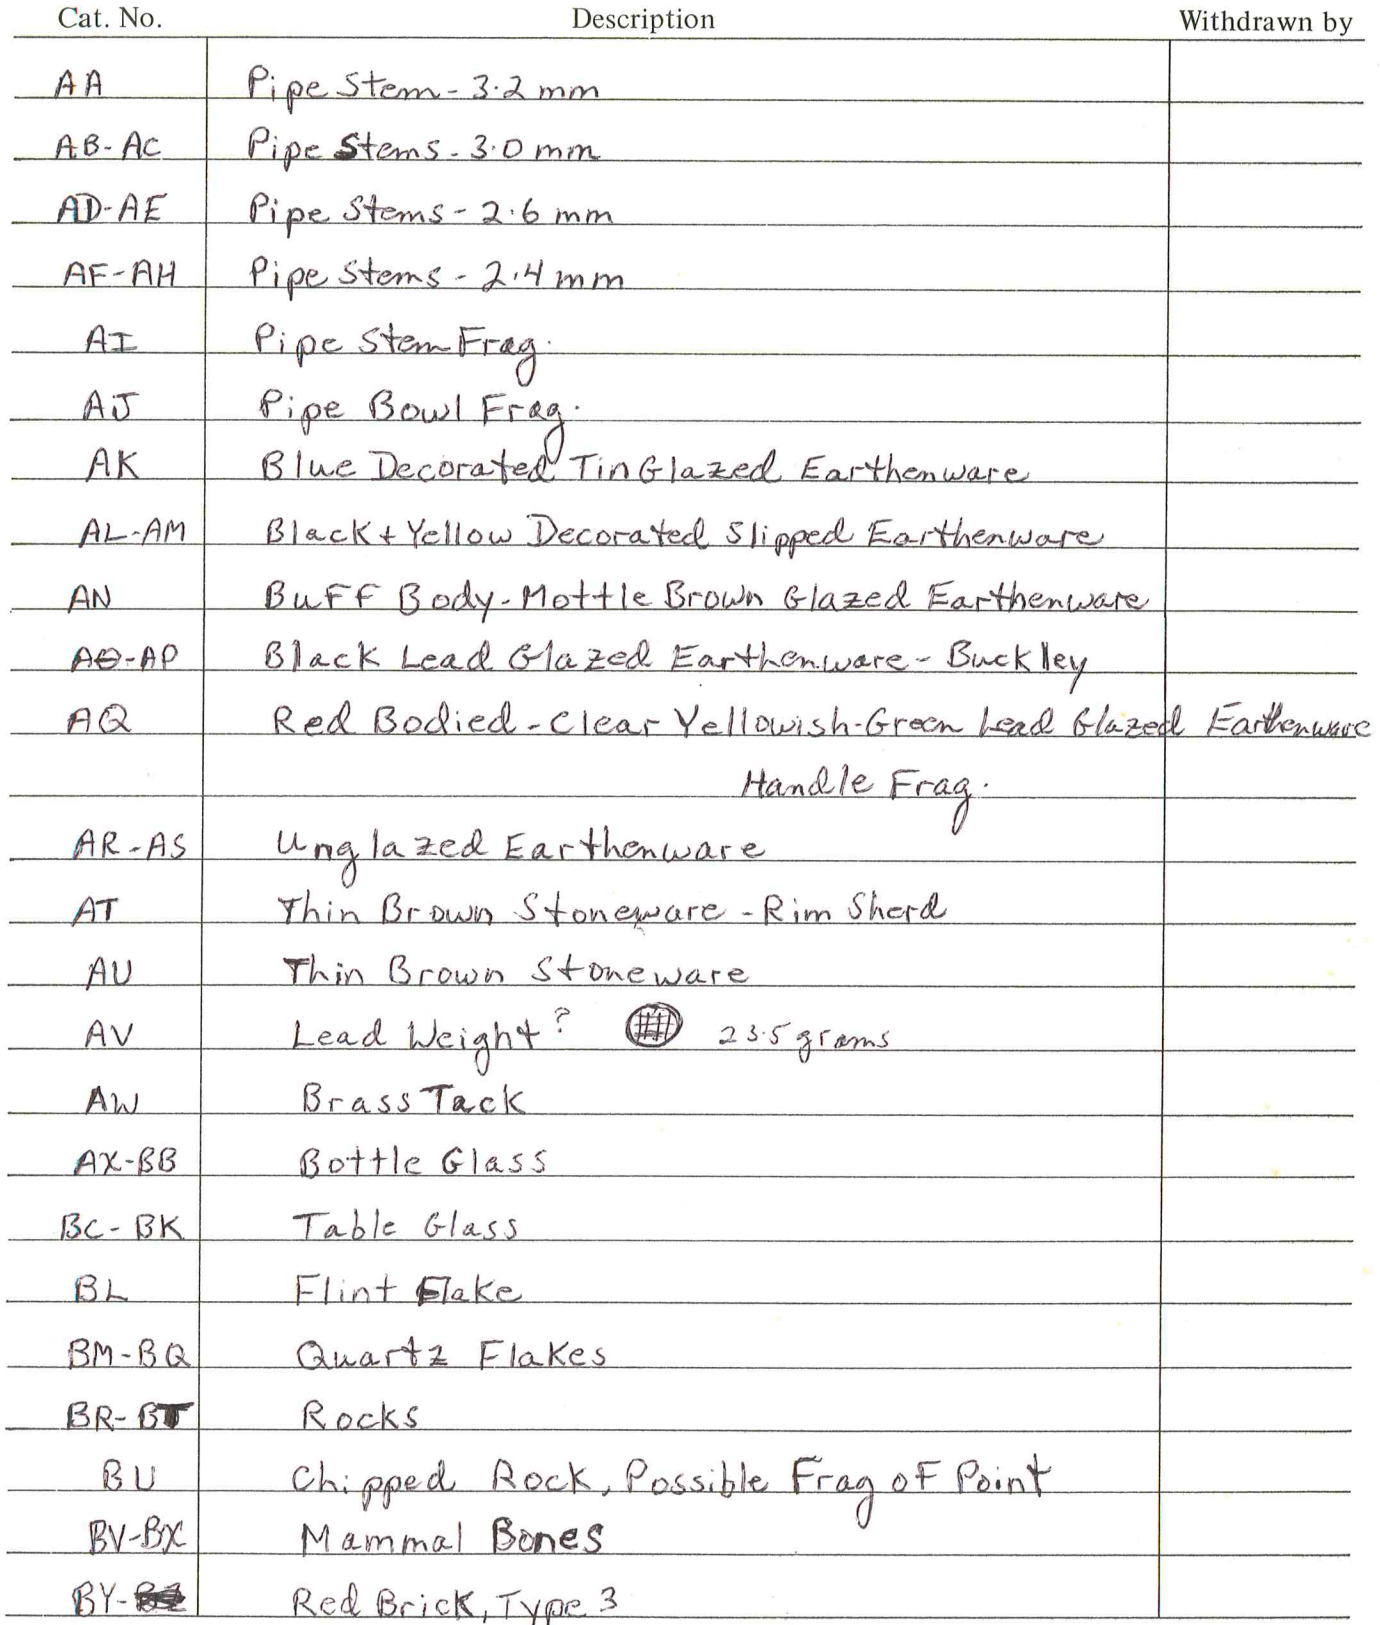 Cat. No. Description Withdrawn by
AA Pipe Stem - 3.2 mm
AB-AC Pipe Stems - 3.0 mm
AD-AE Pipe Stems - 2.6 mm
AF-AH Pipe Stems - 2.4 mm
AI Pipe Stem Frag.
AJ Pipe Bowl Frag.
AK Blue Decorated Tin Glazed Earthenware
AL-AM Black + Yellow Decorated Slipped Earthenware
AN Buff Body - Mottle Brown Glazed Earthenware
AO-AP Black Lead Glazed Earthenware - Buckley
AQ Red Bodied - Clear Yellowish-Green Lead Glazed Earthenware
Handle Frag.
AR-AS Unglazed Earthenware
AT Thin Brown Stoneware - Rim Sherd
AU Thin Brown Stoneware
AV Lead Weight? 23.5 grams
AW Brass Tack
AX-BB Bottle Glass
BC-BK Table Glass
BL Flint Flake
BM-BQ Quartz Flakes
BR-BT Rocks
BU Chipped Rock, Possible Frag of Point
BV-BX Mammal Bones
BY- Red Brick, Type 3